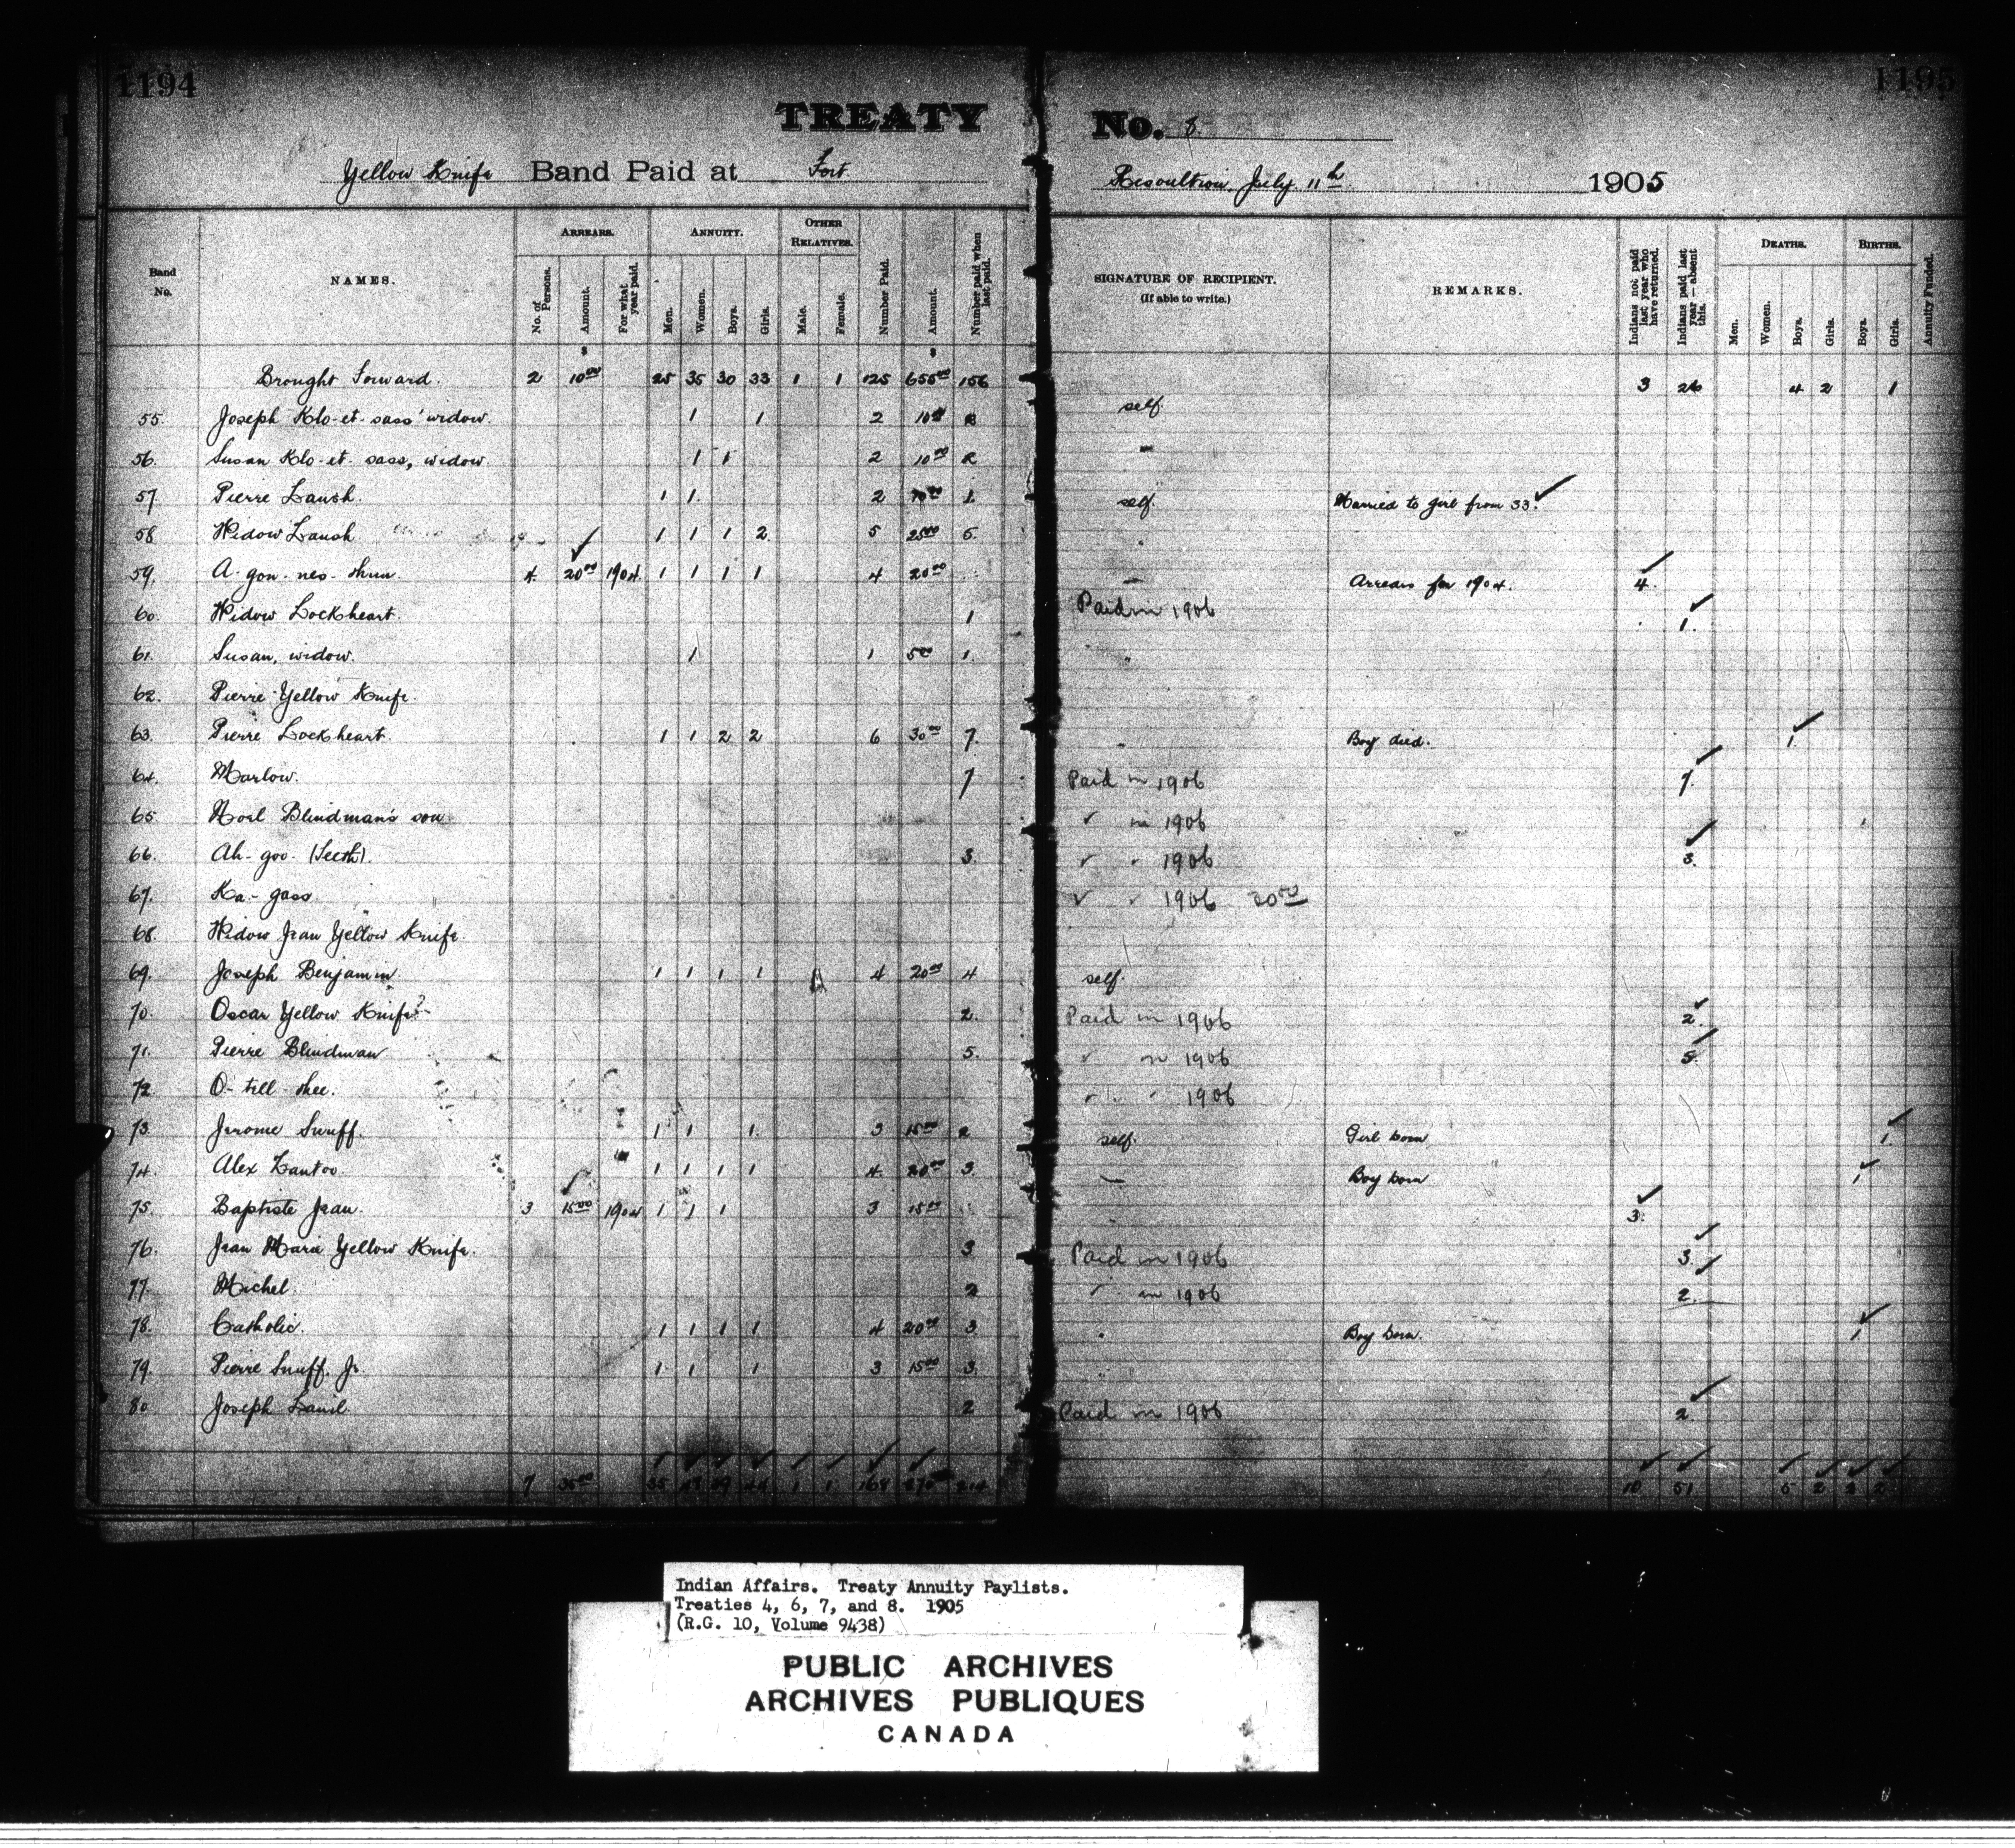 1194 1195
TREATY No. 8
Yellow Knife Band Paid at Fort Resoultion, July 11th 1905
Band No. NAMES. ARREARS. No. of Persons. Amount. For what year paid. ANNUITY. Men. Women. Boys. Girls. OTHER RELATIVES. Male. Female. Number Paid. Amount. Number paid when last paid. SIGNATURE OF RECIPIENT. (If able to write.) REMARKS. Indians not paid last year who have returned. Indians paid last year—absent this. DEATHS. Men. Women. Boys. Girls. BIRTHS. Boys. Girls. Annuity Funded.
Brought Forward. 2 10.00 25 35 30 33 1 1 125 655.00 156 3 26 4 2 1
55. Joseph Klo-et-sass' widow. 1 1 2 10.00 2 self.
56. Susan Klo-et-sass, widow. 1 1 2 10.00 2 "
57. Pierre 1 1 2 10.00 1. self. Married to girl from 33. ✓
58 Widow 1 1 1 2 5 25.00 5. "
59. A-gon-nes-thun. 4 20.00 ✓ 1904 1 1 1 1 4 20.00 " Arrears for 1904. 4. ✓
60. Widow Lockheart. 1 Paid in 1906 1. ✓
61. Susan, widow. 1 1 5.00 1. "
62. Pierre Yellow Knife.
63. Pierre Lockheart. 1 1 2 2 6 30.00 7. " Boy died. 1. ✓
64. Marlow. 7 Paid in 1906 7. ✓
65. Noel Blindman's son " in 1906
66. Ah-goo- (Seesh). 3. " " 1906 3. ✓
67. Ka-gass " " 1906 20.00
68. Widow Jean Yellow Knife.
69. Joseph Benjamin. 1 1 1 1 4 20.00 4 self.
70. Oscar Yellow Knife? 2. Paid in 1906 2. ✓
71. Pierre Blindman 5. " in 1906 5. ✓
72. O-till-thee. " " 1906
73. Jerome Snuff. 1 1 1. 3 15.00 2 self. Girl born 1. ✓
74. Alex 1 1 1 1 4. 20.00 3. " Boy born 1 ✓
75. Baptiste Jean. 3 15.00 ✓ 1904 1 1 1 3 15.00 " 3. ✓
76. Jean Marie Yellow Knife. 3 Paid in 1906 3. ✓
77. Michel. 2 " in 1906 2. ✓
78. Catholic. 1 1 1 1 4 20.00 3 " Boy born. 1 ✓
79. Pierre Snuff. Jr. 1 1 1 3 15.00 3. "
80 Joseph 2 Paid in 1906 2. ✓
7 35.00 35 1 1 168 10 51 5 2
Indian Affairs. Treaty Annuity Paylists.
Treaties 4, 6, 7, and 8. 1905
(R.G. 10, Volume 9438)
PUBLIC ARCHIVES
ARCHIVES PUBLIQUES
CANADA